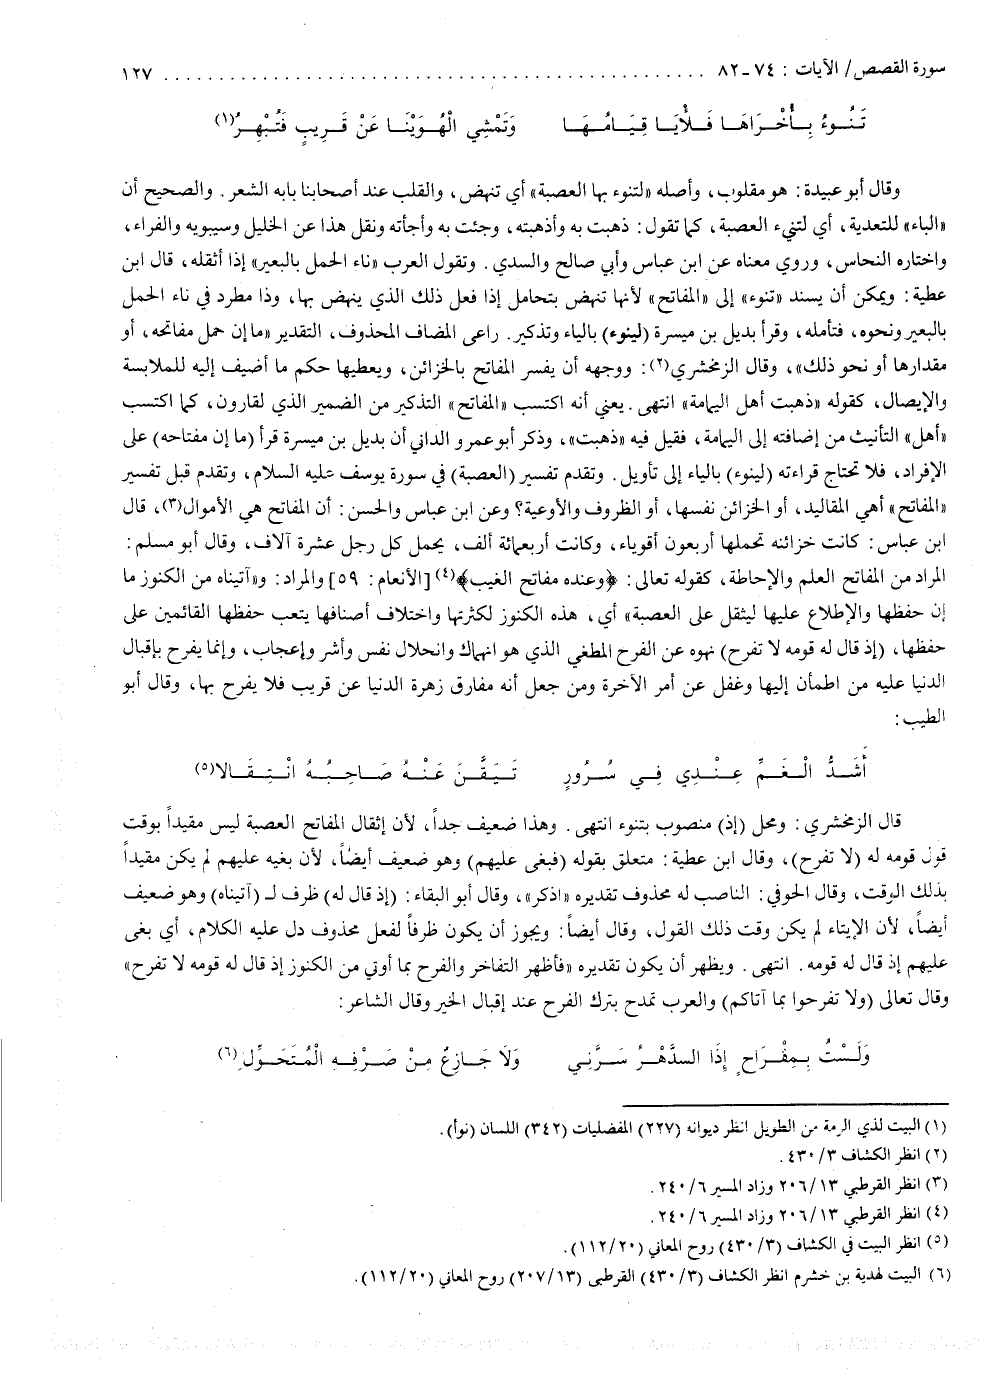 سورة القصص/ الآيات : ٧٤ـ٨٢ ........................................................ ١٢٧
تَنُوءُ بِأُخْرَاهَا فَلأْيَا قِيَامُهَا وَتَمْشِي الْهُوَيْنَا عَنْ قَرِيبٍ فَتُبْهِرُ(١)
وقال أبو عبيدة : هو مقلوب، وأصله «لتنوء بها العصبة» أي تنهض، والقلب عند أصحابنا بابه الشعر. والصحيح أن
«الباء» للتعدية، أي لتنيء العصبة، كما تقول: ذهبت به وأذهبته، وجئت به وأجأته ونقل هذا عن الخليل وسيبويه والفراء،
واختاره النحاس، وروي معناه عن ابن عباس وأبي صالح والسدي. وتقول العرب «ناء الحمل بالبعير» إذا أثقله، قال ابن
عطية: ويمكن أن يسند «تنوء» إلى «المفاتح» لأنها تنهض بتحامل إذا فعل ذلك الذي ينهض بها، وذا مطرد في ناء الحمل
بالبعير ونحوه، فتأمله، وقرأ بديل بن ميسرة (لينوء) بالياء وتذكير. راعى المضاف المحذوف، التقدير «ما إن حمل مفاتحه، أو
مقدارها أو نحو ذلك»، وقال الزمخشري(٢): ووجهه أن يفسر المفاتح بالخزائن، ويعطيها حكم ما أضيف إليه للملابسة
والإيصال، كقوله «ذهبت أهل اليمامة» انتهى. يعني أنه اكتسب «المفاتح» التذكير من الضمير الذي لقارون، كما اكتسب
«أهل» التأنيث من إضافته إلى اليمامة، فقيل فيه «ذهبت»، وذكر أبو عمرو الداني أن بديل بن ميسرة قرأ (ما إن مفتاحه) على
الإفراد، فلا تحتاج قراءته (لينوء) بالياء إلى تأويل. وتقدم تفسير (العصبة) في سورة يوسف عليه السلام، وتقدم قبل تفسير
«المفاتح» أهي المقاليد، أو الخزائن نفسها، أو الظروف والأوعية؟ وعن ابن عباس والحسن: أن المفاتح هي الأموال(٣)، قال
ابن عباس: كانت خزائنه تحملها أربعون أقوياء، وكانت أربعمائة ألف، يحمل كل رجل عشرة آلاف، وقال أبو مسلم:
المراد من المفاتح العلم والإحاطة، كقوله تعالى: ﴿وعنده مفاتح الغيب﴾(٤) [الأنعام: ٥٩] والمراد: و«آتيناه من الكنوز ما
إن حفظها والإطلاع عليها ليثقل على العصبة» أي، هذه الكنوز لكثرتها واختلاف أصنافها يتعب حفظها القائمين على
حفظها، (إذ قال له قومه لا تفرح) نهوه عن الفرح المطغي الذي هو انهماك وانحلال نفس وأشر وإعجاب، وإنما يفرح بإقبال
الدنيا عليه من اطمأن إليها وغفل عن أمر الآخرة ومن جعل أنه مفارق زهرة الدنيا عن قريب فلا يفرح بها، وقال أبو
الطيب:
أَشَدُّ الْغَمِّ عِنْدِي فِي سُرُورٍ تَيَقَّنَ عَنْهُ صَاحِبُهُ انْتِقَالا(٥)
قال الزمخشري: ومحل (إذ) منصوب بتنوء انتهى. وهذا ضعيف جداً، لأن إثقال المفاتح العصبة ليس مقيداً بوقت
قول قومه له (لا تفرح)، وقال ابن عطية: متعلق بقوله (فبغى عليهم) وهو ضعيف أيضاً، لأن بغيه عليهم لم يكن مقيداً
بذلك الوقت، وقال الحوفي: الناصب له محذوف تقديره «اذكر»، وقال أبو البقاء: (إذ قال له) ظرف لـ (آتيناه) وهو ضعيف
أيضاً، لأن الإيتاء لم يكن وقت ذلك القول، وقال أيضاً: ويجوز أن يكون ظرفاً لفعل محذوف دل عليه الكلام، أي بغى
عليهم إذ قال له قومه. انتهى. ويظهر أن يكون تقديره «فأظهر التفاخر والفرح بما أوتي من الكنوز إذ قال له قومه لا تفرح»
وقال تعالى (ولا تفرحوا بما آتاكم) والعرب تمدح بترك الفرح عند إقبال الخير وقال الشاعر:
وَلَسْتُ بِمِفْرَاحٍ إِذَا السدَّهْرُ سَرَّنِي وَلاَ جَازِعٌ مِنْ صَرْفِهِ الْمُتَحَوِّلِ(٦)
(١) البيت لذي الرمة من الطويل انظر ديوانه (٢٢٧) المفضليات (٣٤٢) اللسان (نوأ).
(٢) انظر الكشاف ٤٣٠/٣.
(٣) انظر القرطبي ٢٠٦/١٣ وزاد المسير ٢٤٠/٦.
(٤) انظر القرطبي ٢٠٦/١٣ وزاد المسير ٢٤٠/٦.
(٥) انظر البيت في الكشاف (٤٣٠/٣) روح المعاني (١١٢/٢٠).
(٦) البيت لهدية بن خشرم انظر الكشاف (٤٣٠/٣) القرطبي (٢٠٧/١٣) روح المعاني (١١٢/٢٠).